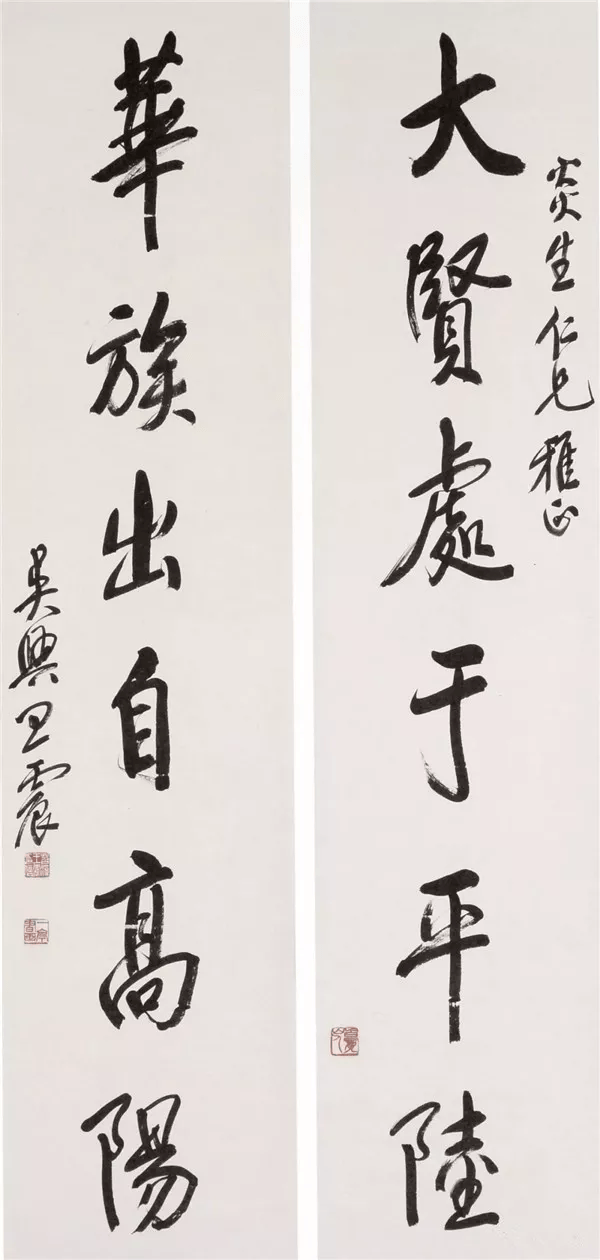 炎生仁兄雅正
大賢處于平陸
華族出自高陽
吴興王震